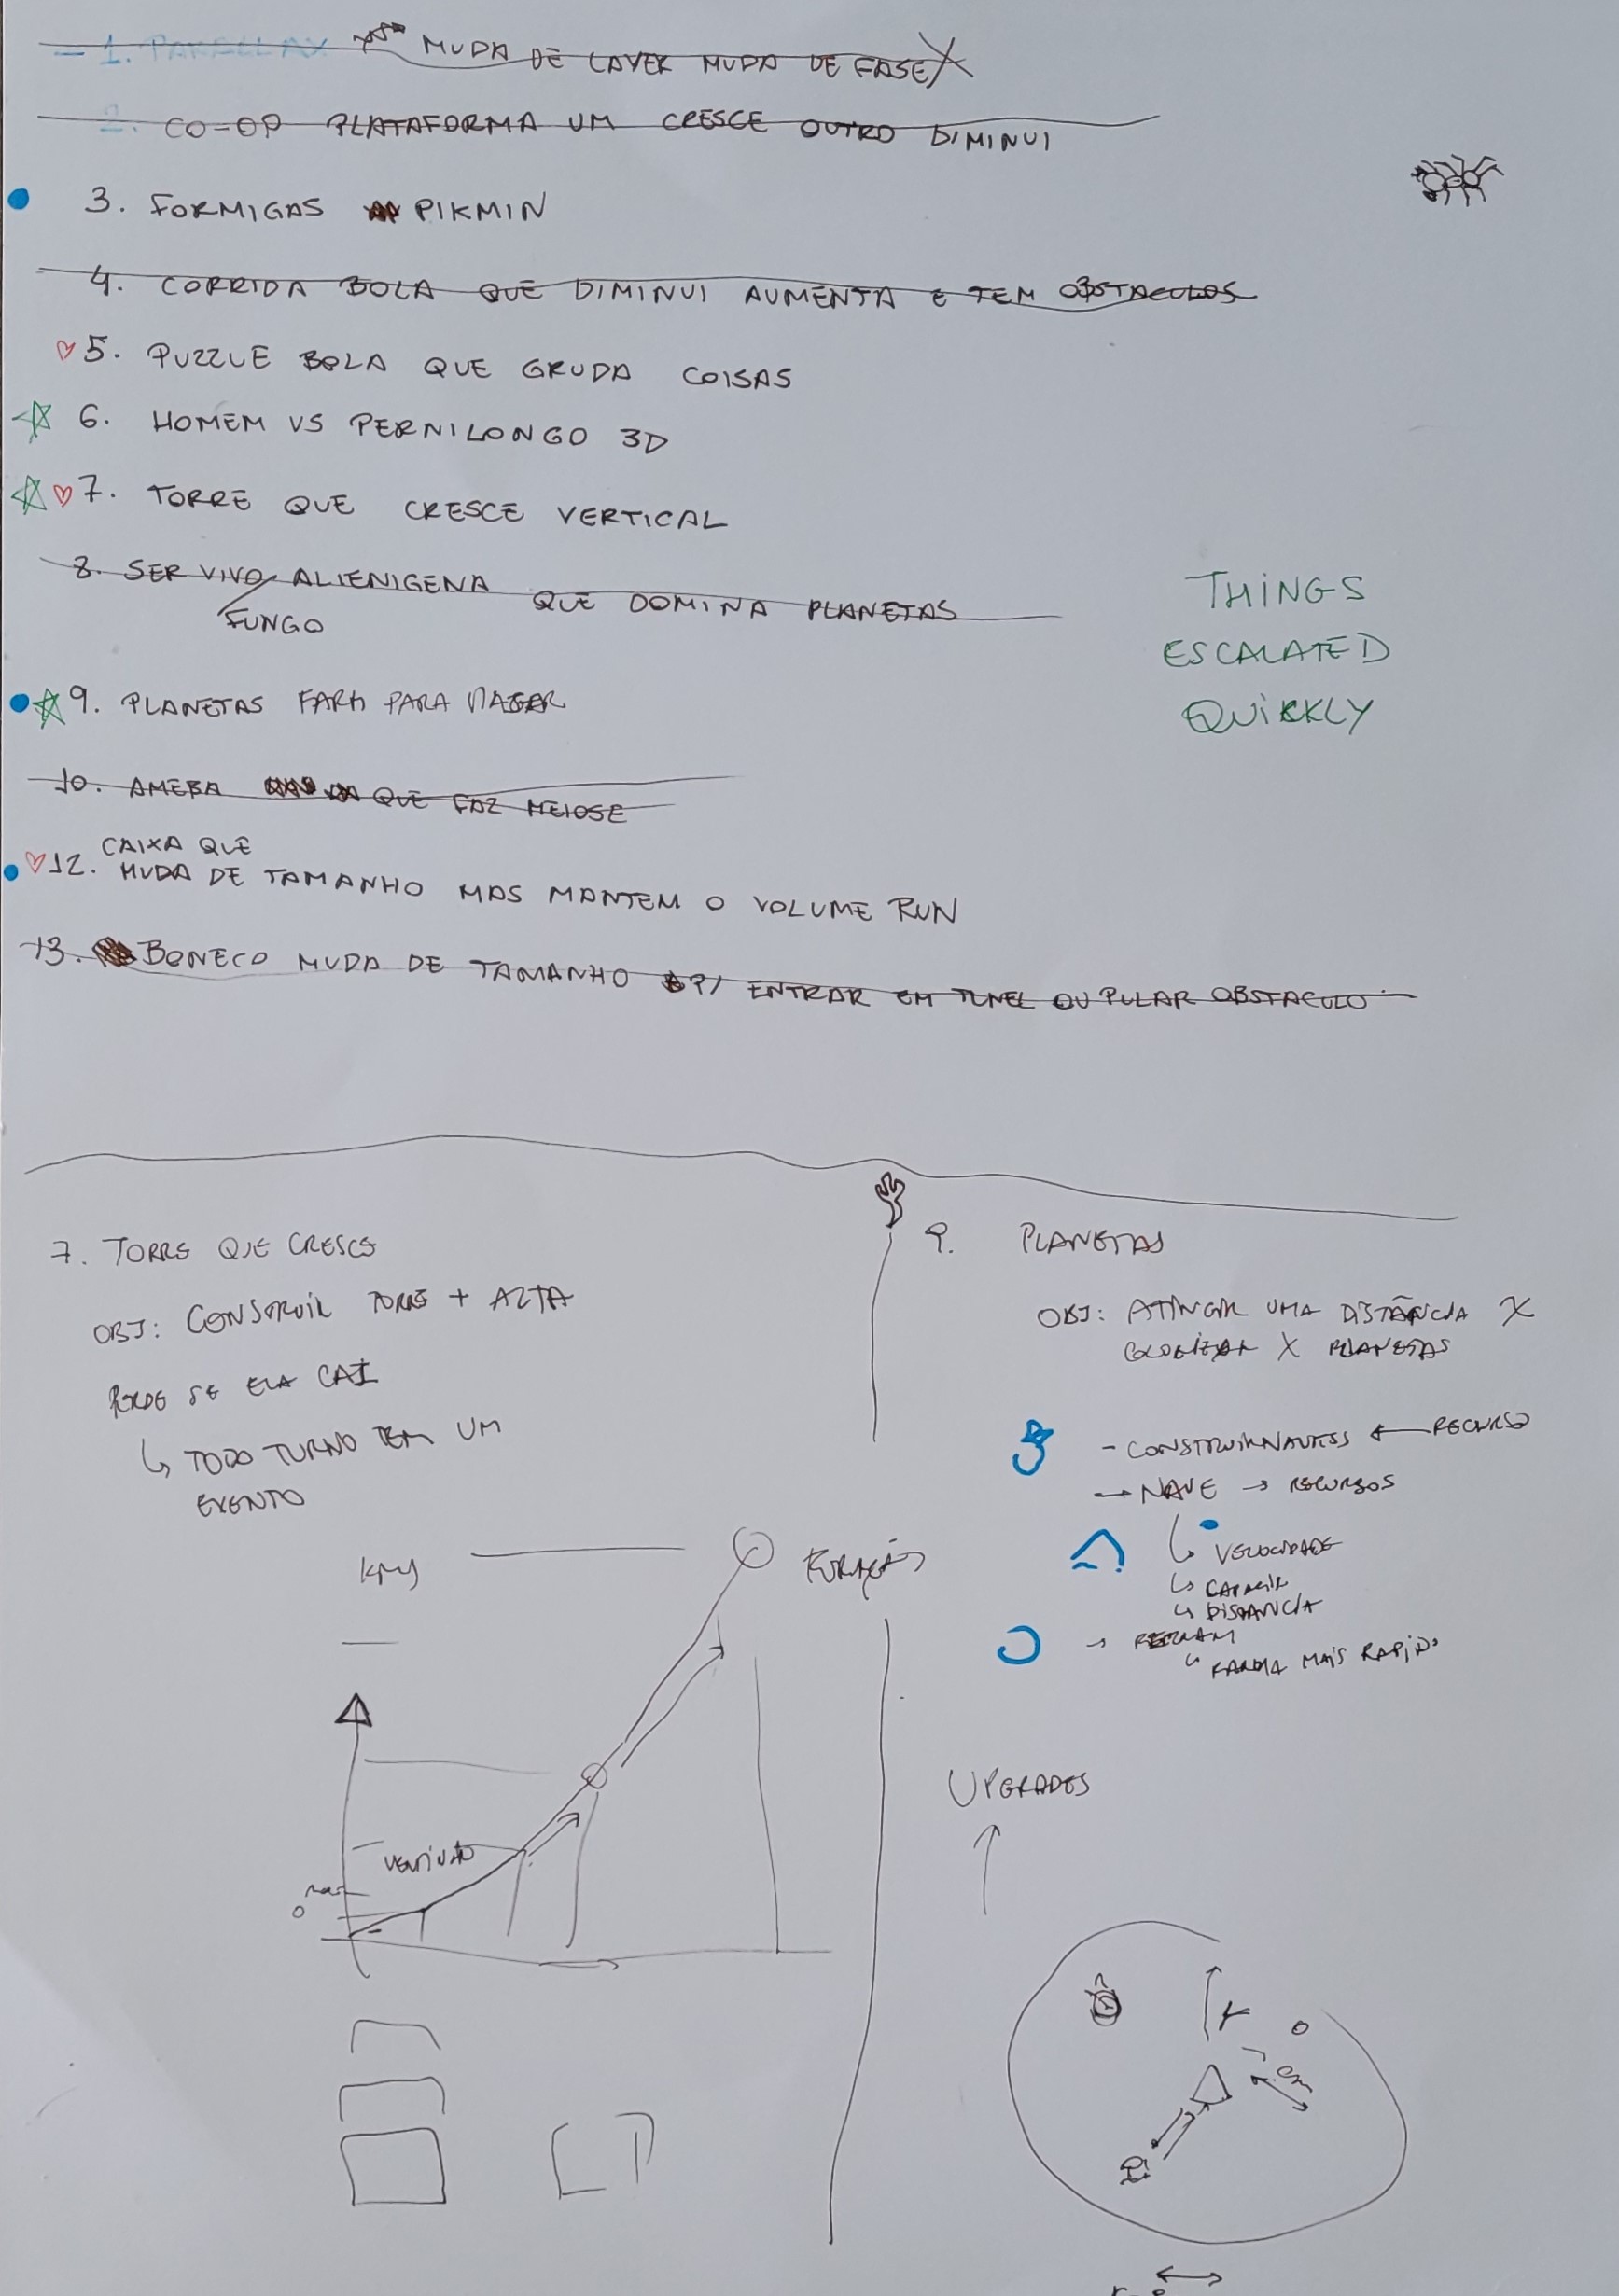 - 1. PARALLAX MUDA DE LAYER MUDA DE FASE X
2. CO-OP PLATAFORMA UM CRESCE OUTRO DIMINUI
3. FORMIGAS PIKMIN
4. CORRIDA BOLA QUE DIMINUI AUMENTA E TEM OBSTACULOS
5. PUZZLE BOLA QUE GRUDA COISAS
6. HOMEM VS PERNILONGO 3D
7. TORRE QUE CRESCE VERTICAL
8. SER VIVO ALIENIGENA QUE DOMINA PLANETAS
FUNGO
THINGS
ESCALATED
QUICKLY
9. PLANETAS FARM PARA
10. AMEBA QUE FAZ MEIOSE
CAIXA QUE
12. MUDA DE TAMANHO MAS MANTEM O VOLUME RUN
13. BONECO MUDA DE TAMANHO P/ ENTRAR EM TUNEL OU PULAR OBSTACULO
7. TORRE QUE CRESCE
OBJ: CONSTRUIR TORRE + ALTA
PERDE SE ELA CAI
TODO TURNO TEM UM
EVENTO
KM
FURAÇÃO
9. PLANETAS
OBJ: ATINGIR UMA DISTÂNCIA X
COLONIZAR X PLANETAS
- CONSTRUIR NAVES ← RECURSO
→ NAVE → RECURSOS
VELOCIDADE
DISTANCIA
FARMA MAIS RAPIDO
UPGRADES